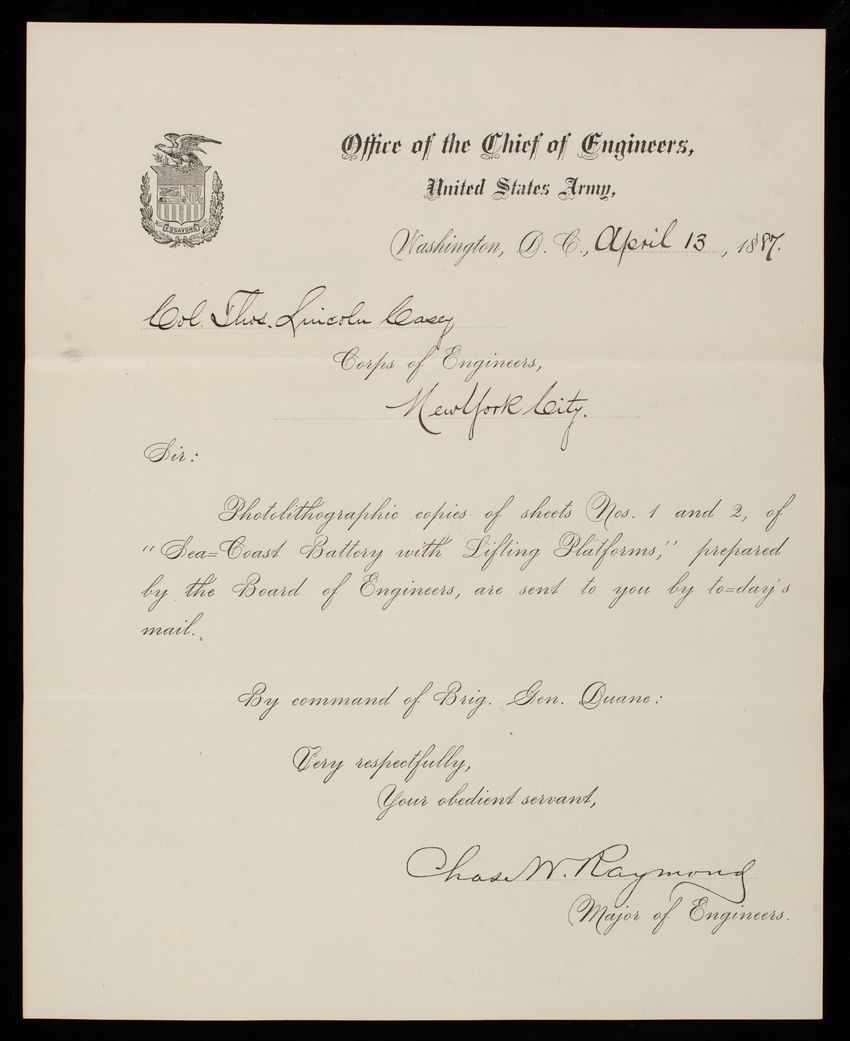 Office of the Chief of Engineers,
United States Army,
ESSAYONS
Washington, D. C., April 13, 1887.
Col. Thos. Lincoln Casey
Corps of Engineers,
New York City.
Sir:
Photolithographic copies of sheets Nos. 1 and 2, of
"Sea=Coast Battery with Lifting Platforms," prepared
by the Board of Engineers, are sent to you by to=day's
mail.
By command of Brig. Gen. Duane:
Very respectfully,
Your obedient servant,
Chas. W. Raymond
Major of Engineers.